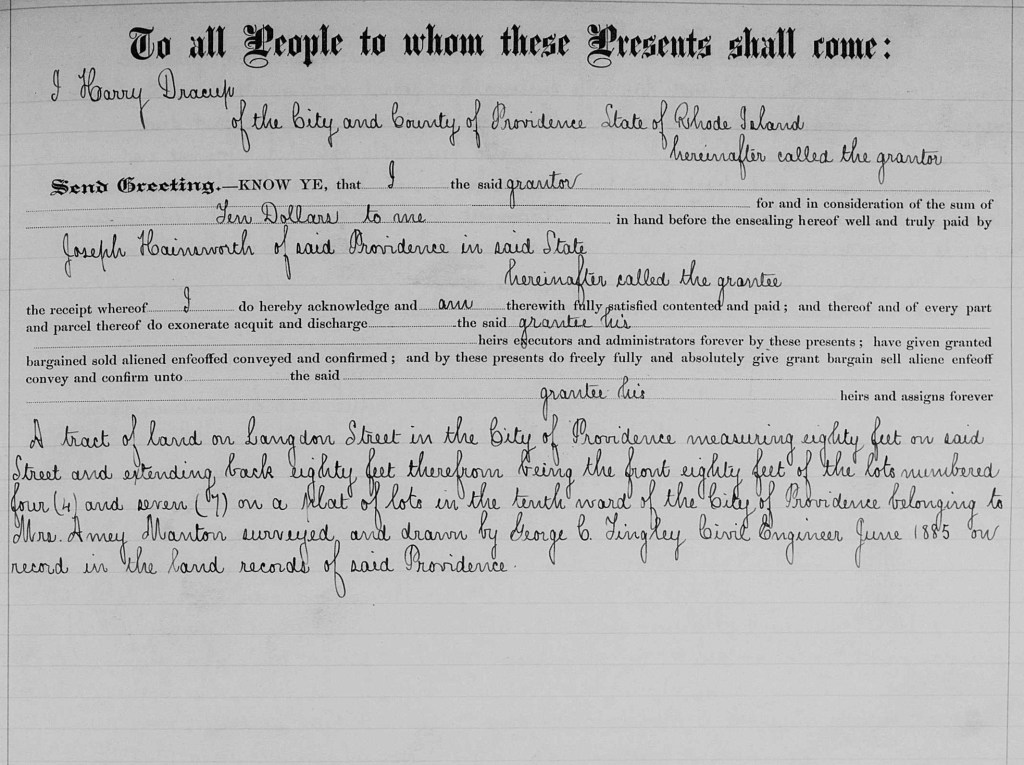 To all People to whom these Presents shall come:
I Harry Dracup
of the City and County of Providence State of Rhode Island
hereinafter called the grantor
Send Greeting.—KNOW YE, that I the said grantor
for and in consideration of the sum of
Ten Dollars to me in hand before the ensealing hereof well and truly paid by
Joseph Hainsworth of said Providence in said State
hereinafter called the grantee
the receipt whereof I do hereby acknowledge and am therewith fully satisfied contented and paid; and thereof and of every part
and parcel thereof do exonerate acquit and discharge the said grantee his
heirs executors and administrators forever by these presents; have given granted
bargained sold aliened enfeoffed conveyed and confirmed; and by these presents do freely fully and absolutely give grant bargain sell aliene enfeoff
convey and confirm unto the said
grantee his heirs and assigns forever
A tract of land on Langdon Street in the City of Providence measuring eighty feet on said
Street and extending back eighty feet therefrom being the front eighty feet of the lots numbered
four (4) and seven (7) on a plat of lots in the tenth ward of the City of Providence belonging to
Mrs. Amey Manton surveyed and drawn by George C. Tingley Civil Engineer June 1885 on
record in the land records of said Providence.